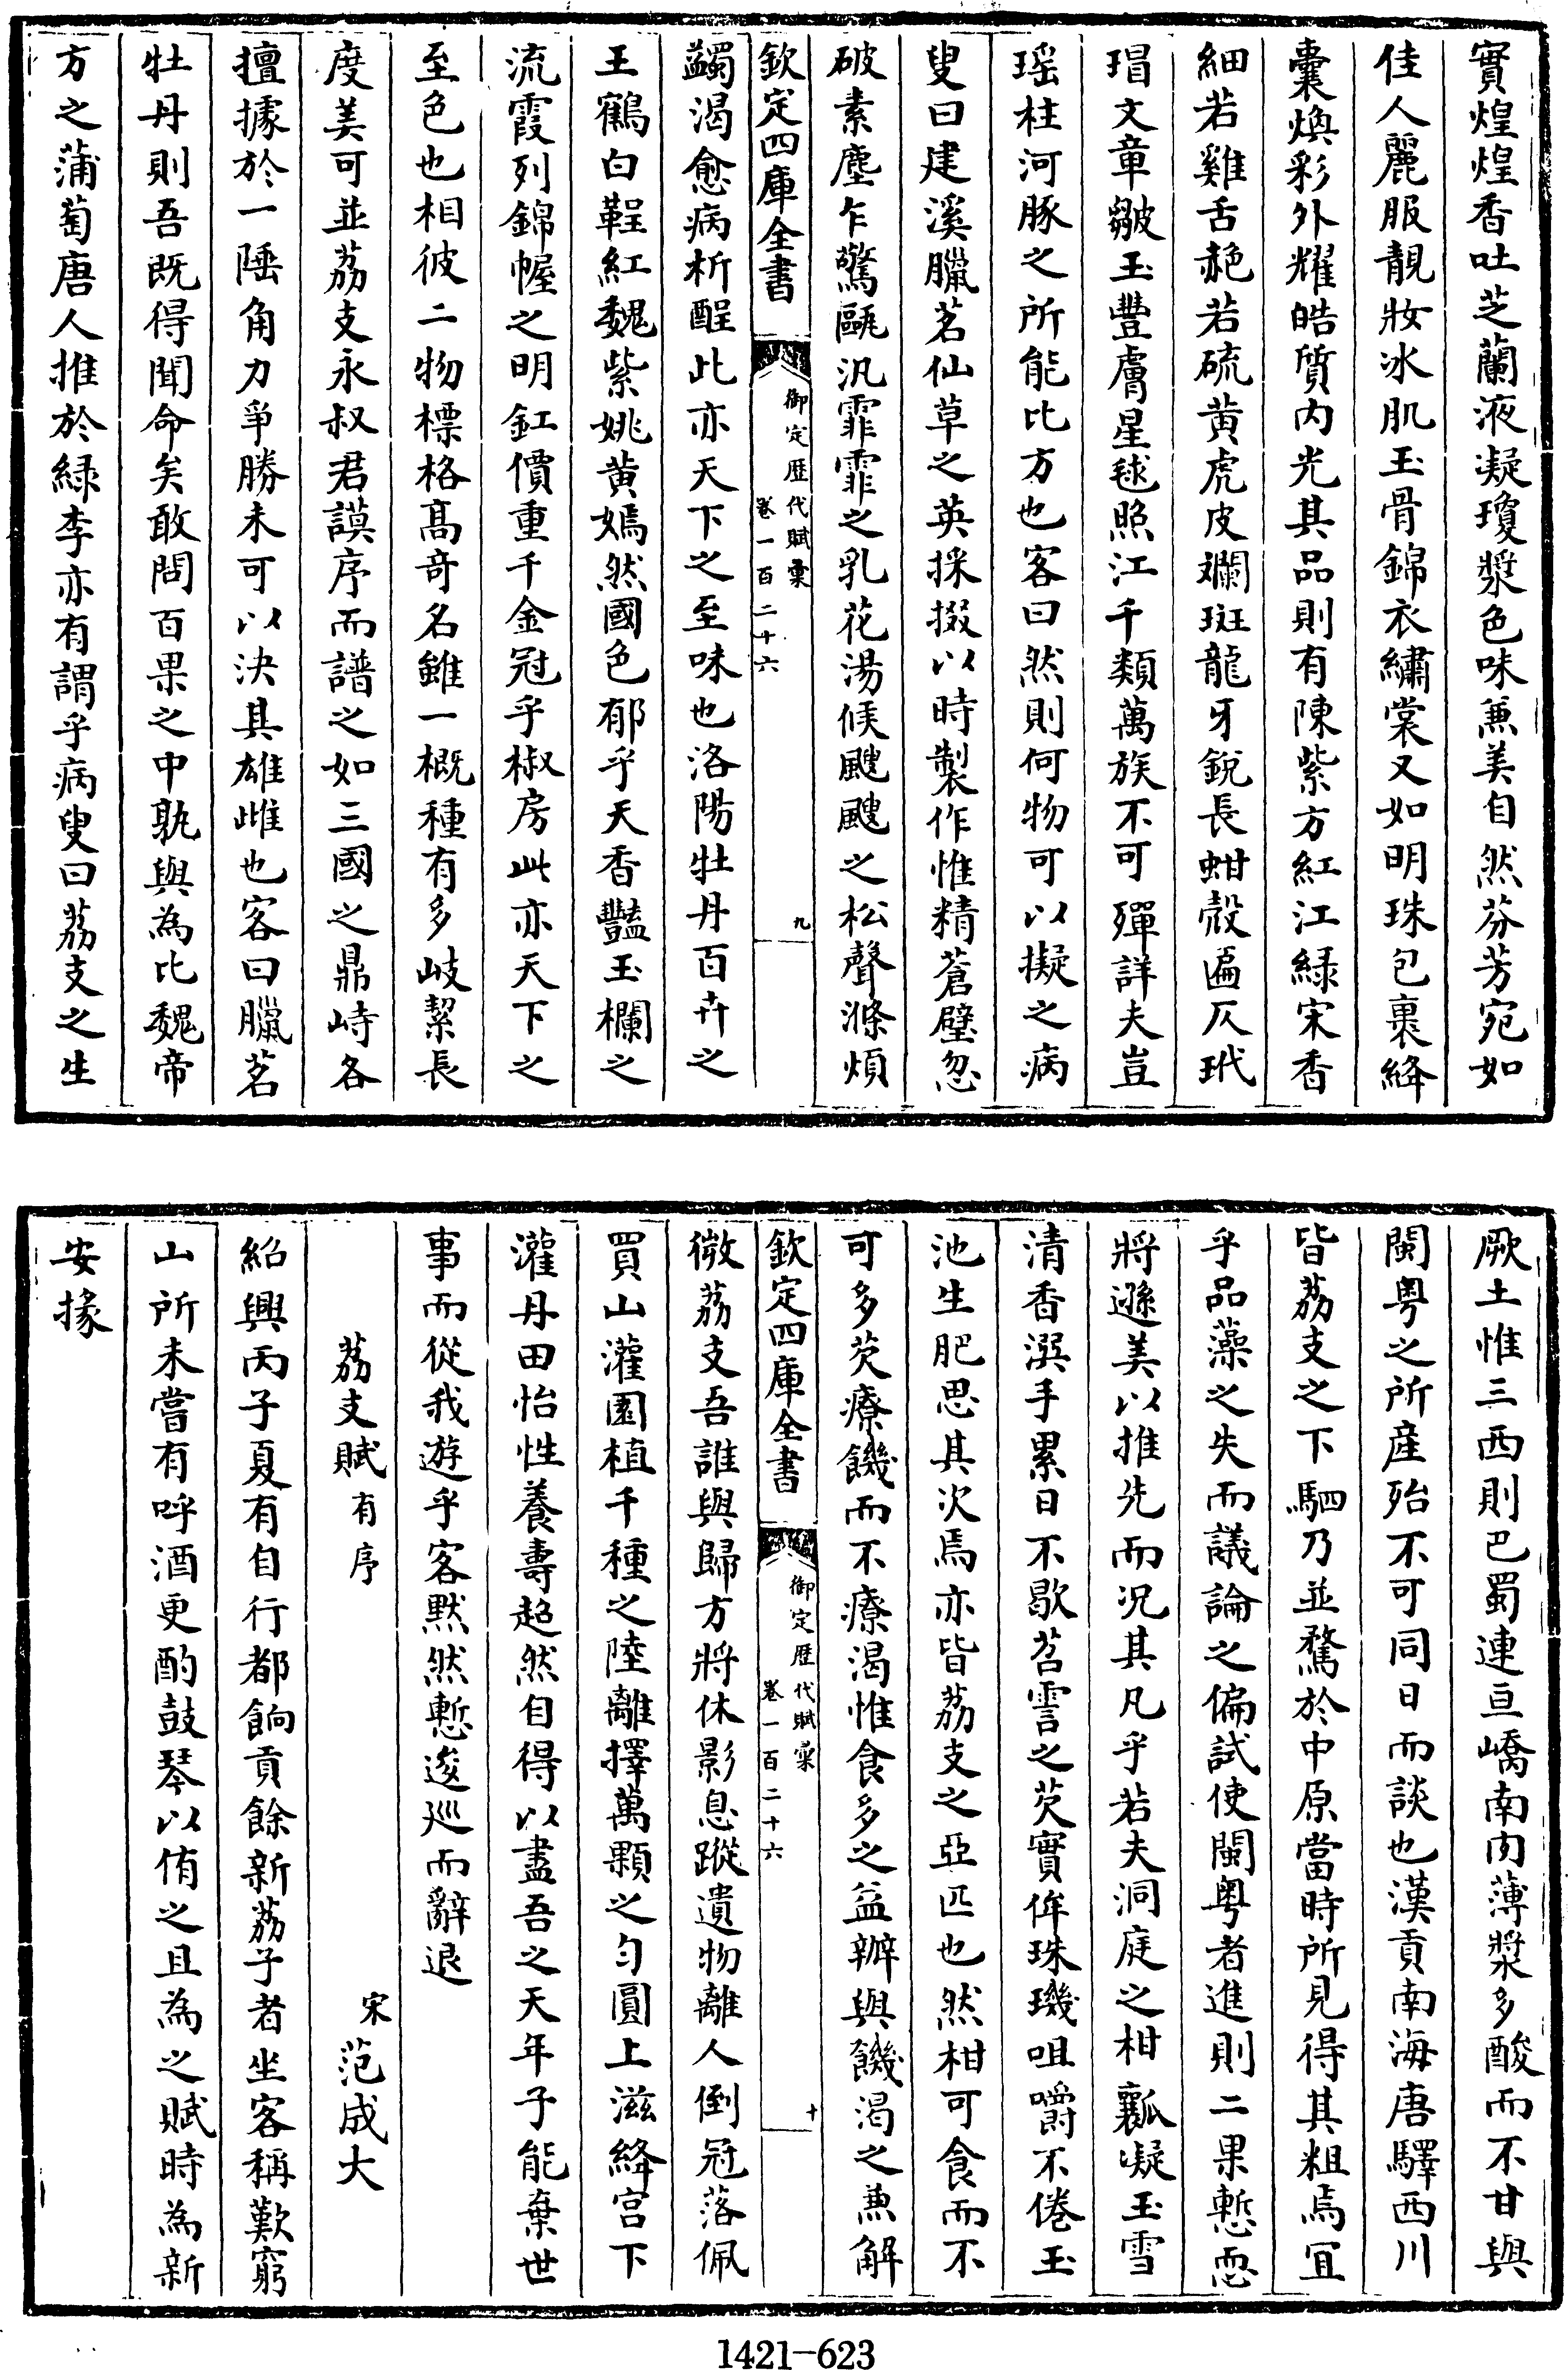 實煌煌香吐芝蘭液凝瓊漿色味兼美自然芬芳宛如
佳人麗服靚妝冰肌玉骨錦衣繡裳又如明珠包裹絳
囊煥彩外耀皓質内光其品則有陳紫方紅江緑宋香
細若雞舌赩若硫黄虎皮斕斑龍牙鋭長蚶殼匾仄玳
瑁文章皺玉豐膚星毬照江千類萬族不可殫詳夫豈
瑶柱河豚之所能比方也客曰然則何物可以擬之病
叟曰建溪臘茗仙草之英採掇以時製作惟精蒼璧忽
破素塵乍驚甌汎霏霏之乳花湯候颼颼之松聲滌煩
欽定四庫全書
御定歴代賦彙
卷一百二十六
九
蠲渴愈病析酲此亦天下之至味也洛陽牡丹百卉之
王鶴白鞓紅魏紫姚黄嫣然國色郁乎天香豔玉欄之
流霞列錦幄之明釭價重千金冠乎椒房此亦天下之
至色也相彼二物標格髙竒名雖一概種有多岐絜長
度美可並荔支永叔君謨序而譜之如三國之鼎峙各
擅據於一陲角力爭勝未可以決其雄雌也客曰臘茗
牡丹則吾既得聞命矣敢問百果之中孰與為比魏帝
方之蒲萄唐人推於緑李亦有謂乎病叟曰荔支之生
厥土惟三西則巴蜀連亘嶠南肉薄漿多酸而不甘與
閩粤之所産殆不可同日而談也漢貢南海唐驛西川
皆荔支之下駟乃並騖於中原當時所見得其粗焉宜
乎品藻之失而議論之偏試使閩粤者進則二果慙恧
將遜美以推先而況其凡乎若夫洞庭之柑瓤凝玉雪
清香潠手累日不歇苕霅之芡實侔珠璣咀嚼不倦玉
池生肥思其次焉亦皆荔支之亞匹也然柑可食而不
可多芡療饑而不療渴惟食多之益辦與饑渴之兼解
欽定四庫全書
御定歴代賦彙
卷一百二十六
十
微荔支吾誰與歸方將休影息蹤遺物離人倒冠落佩
買山灌園植千種之陸離擇萬顆之匀圓上滋絳宫下
灌丹田怡性養夀超然自得以盡吾之天年子能棄世
事而從我遊乎客默然慙逡巡而辭退
荔支賦有序
宋范成大
紹興丙子夏有自行都餉貢餘新荔子者坐客稱歎窮
山所未嘗有呼酒更酌鼓琴以侑之且為之賦時為新
安掾
1421-623